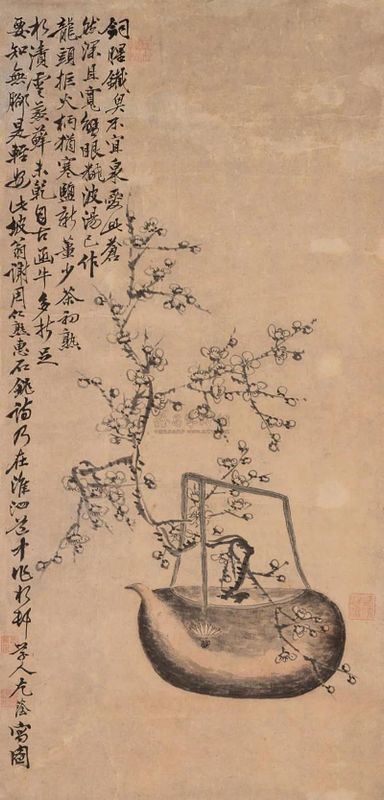 銅腥鐵臭不宜泉愛此蒼
然深且寬蟹眼翻波湯已作
龍頭拒火柄猶寒鹽新薑少茶初熟
水漬雲蒸蘚未乾自古函牛多折足
要知無腳是輕安此坡翁謝周仁熟惠石銚詩乃在淮泗道中作水邨學人尤蔭寫圖